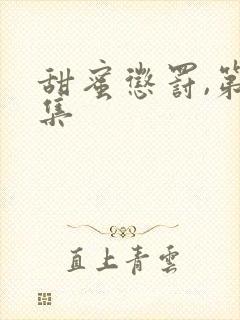 甜蜜惩罚,第
集
直上青雲